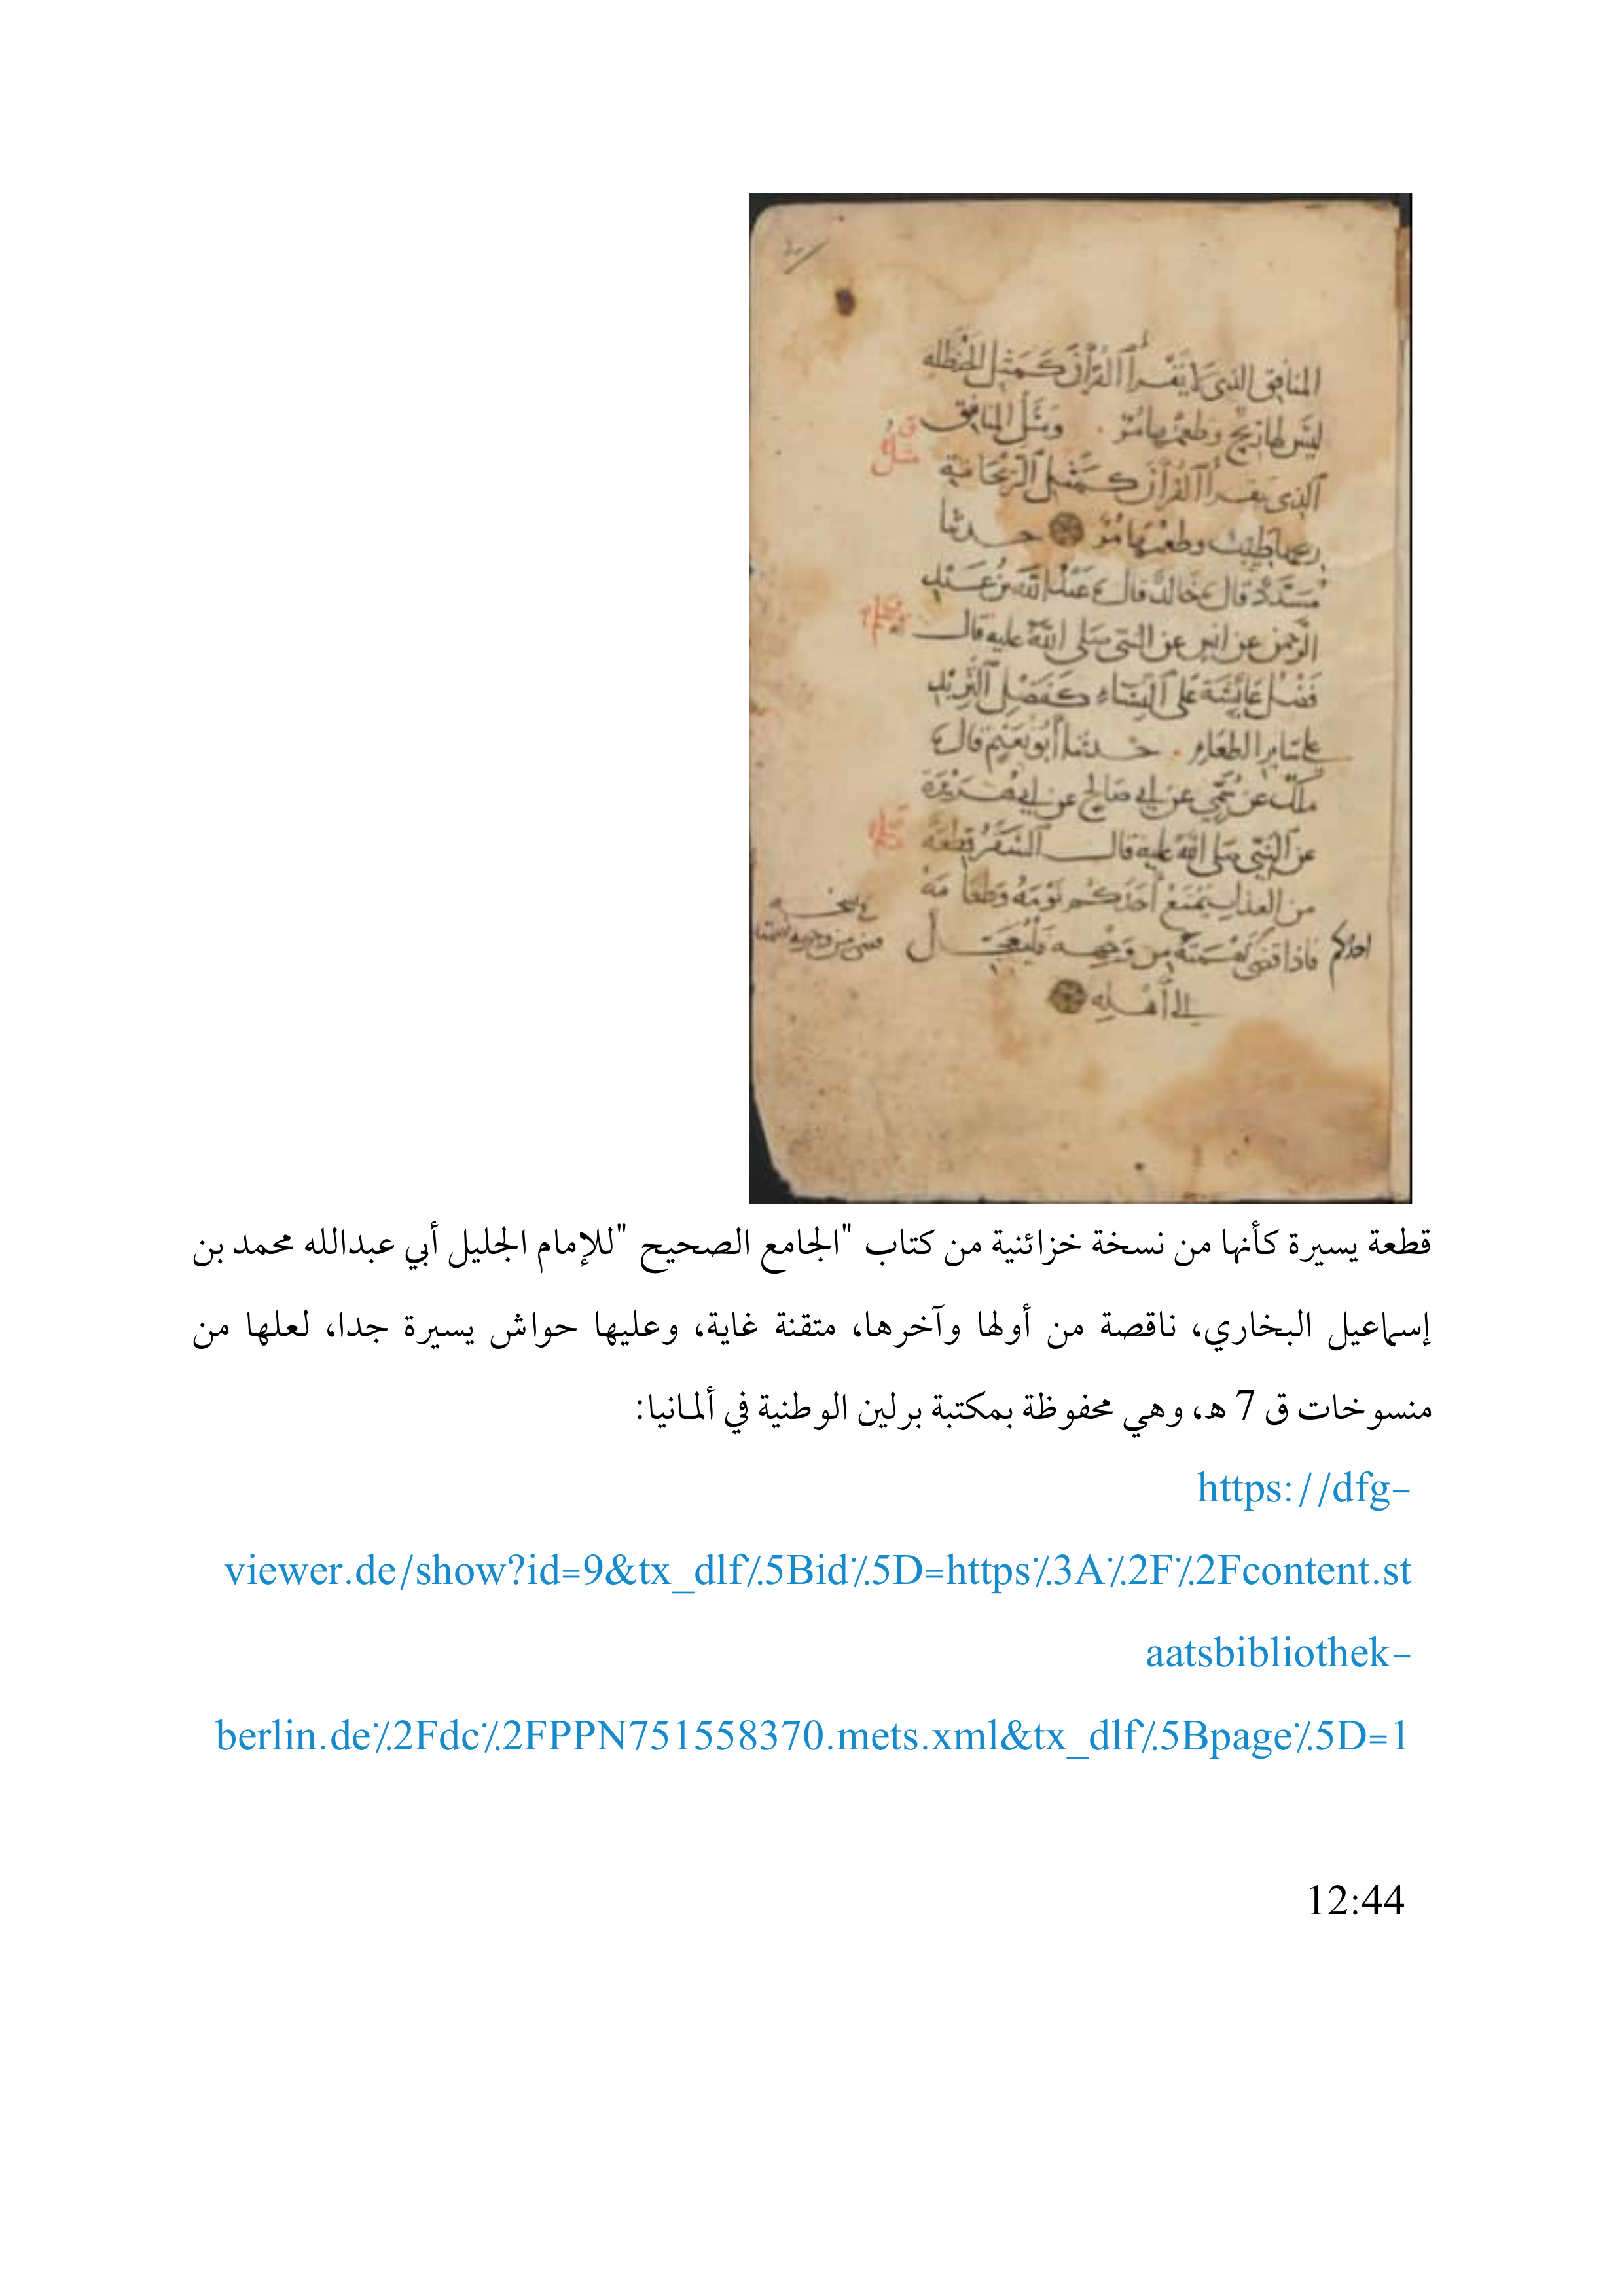 المنافق الذي لا يقرأ القرآن كمثل الحنظلة
ليس لها ريح وطعمها مر ومثل المنافق
الذي يقرأ القرآن كمثل الريحانة
ريحها طيب وطعمها مر حدثنا
مسدد قال خالد قال عبد الله بن عبد
الرحمن عن أنس عن النبي صلى الله عليه قال
فضل عائشة على النساء كفضل الثريد
على سائر الطعام حدثنا أبو نعيم قال
ملك عن سمي عن أبي صالح عن أبي هريرة
عن النبي صلى الله عليه قال السفر قطعة
من العذاب يمنع أحدكم نومه وطعامه
فإذا قضى نهمته من وجهه فليعجل
إلى أهله
أحدكم
قطعة يسيرة كأنها من نسخة خزائنية من كتاب "الجامع الصحيح "للإمام الجليل أبي عبدالله محمد بن
إسماعيل البخاري، ناقصة من أولها وآخرها، متقنة غاية، وعليها حواش يسيرة جدا، لعلها من
منسوخات ق 7 هـ، وهي محفوظة بمكتبة برلين الوطنية في ألمانيا:
https://dfg-
viewer.de/show?id=9&tx_dlf٪5Bid٪5D=https٪3A٪2F٪2Fcontent.st
aatsbibliothek-
berlin.de٪2Fdc٪2FPPN751558370.mets.xml&tx_dlf٪5Bpage٪5D=1
12:44